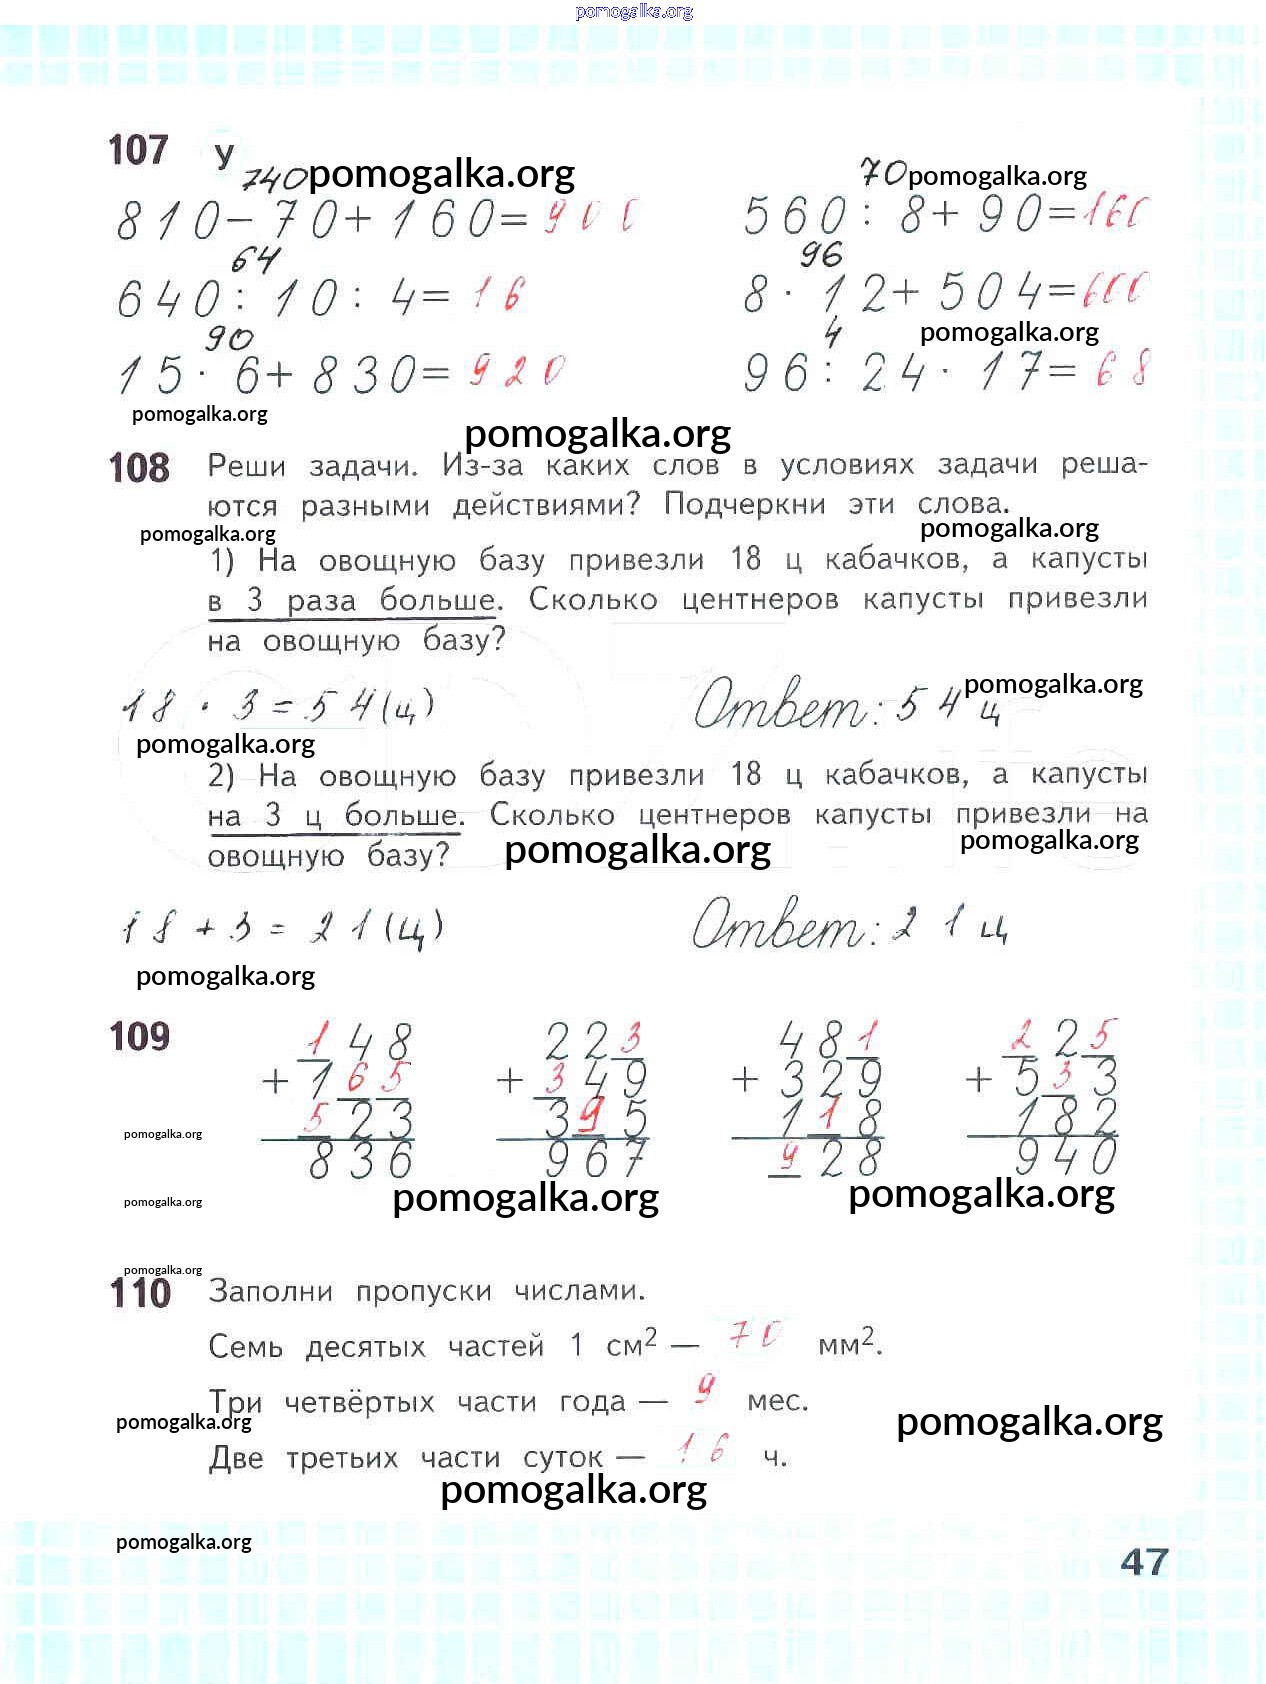 pomogalka.org
107 У
740 pomogalka.org 70 pomogalka.org
810-70+160=900 560:8+90=160
64 96
640:10:4=16 8·12+504=600
90 4 pomogalka.org
15·6+830=920 96:24·17=68
pomogalka.org
pomogalka.org
108 Реши задачи. Из-за каких слов в условиях задачи реша-
ются разными действиями? Подчеркни эти слова.
pomogalka.org pomogalka.org
1) На овощную базу привезли 18 ц кабачков, а капусты
в 3 раза больше. Сколько центнеров капусты привезли
на овощную базу?
18·3=54(ц) Ответ: 54 ц pomogalka.org
pomogalka.org
2) На овощную базу привезли 18 ц кабачков, а капусты
на 3 ц больше. Сколько центнеров капусты привезли на
овощную базу? pomogalka.org pomogalka.org
18+3=21(ц) Ответ: 21 ц
pomogalka.org
109 148 223 481 225
+165 +349 +329 +533
pomogalka.org 523 395 118 182
836 967 928 940
pomogalka.org pomogalka.org pomogalka.org
pomogalka.org
110 Заполни пропуски числами.
Семь десятых частей 1 см² — 70 мм².
Три четвёртых части года — 9 мес.
pomogalka.org pomogalka.org
Две третьих части суток — 16 ч.
pomogalka.org
pomogalka.org
47